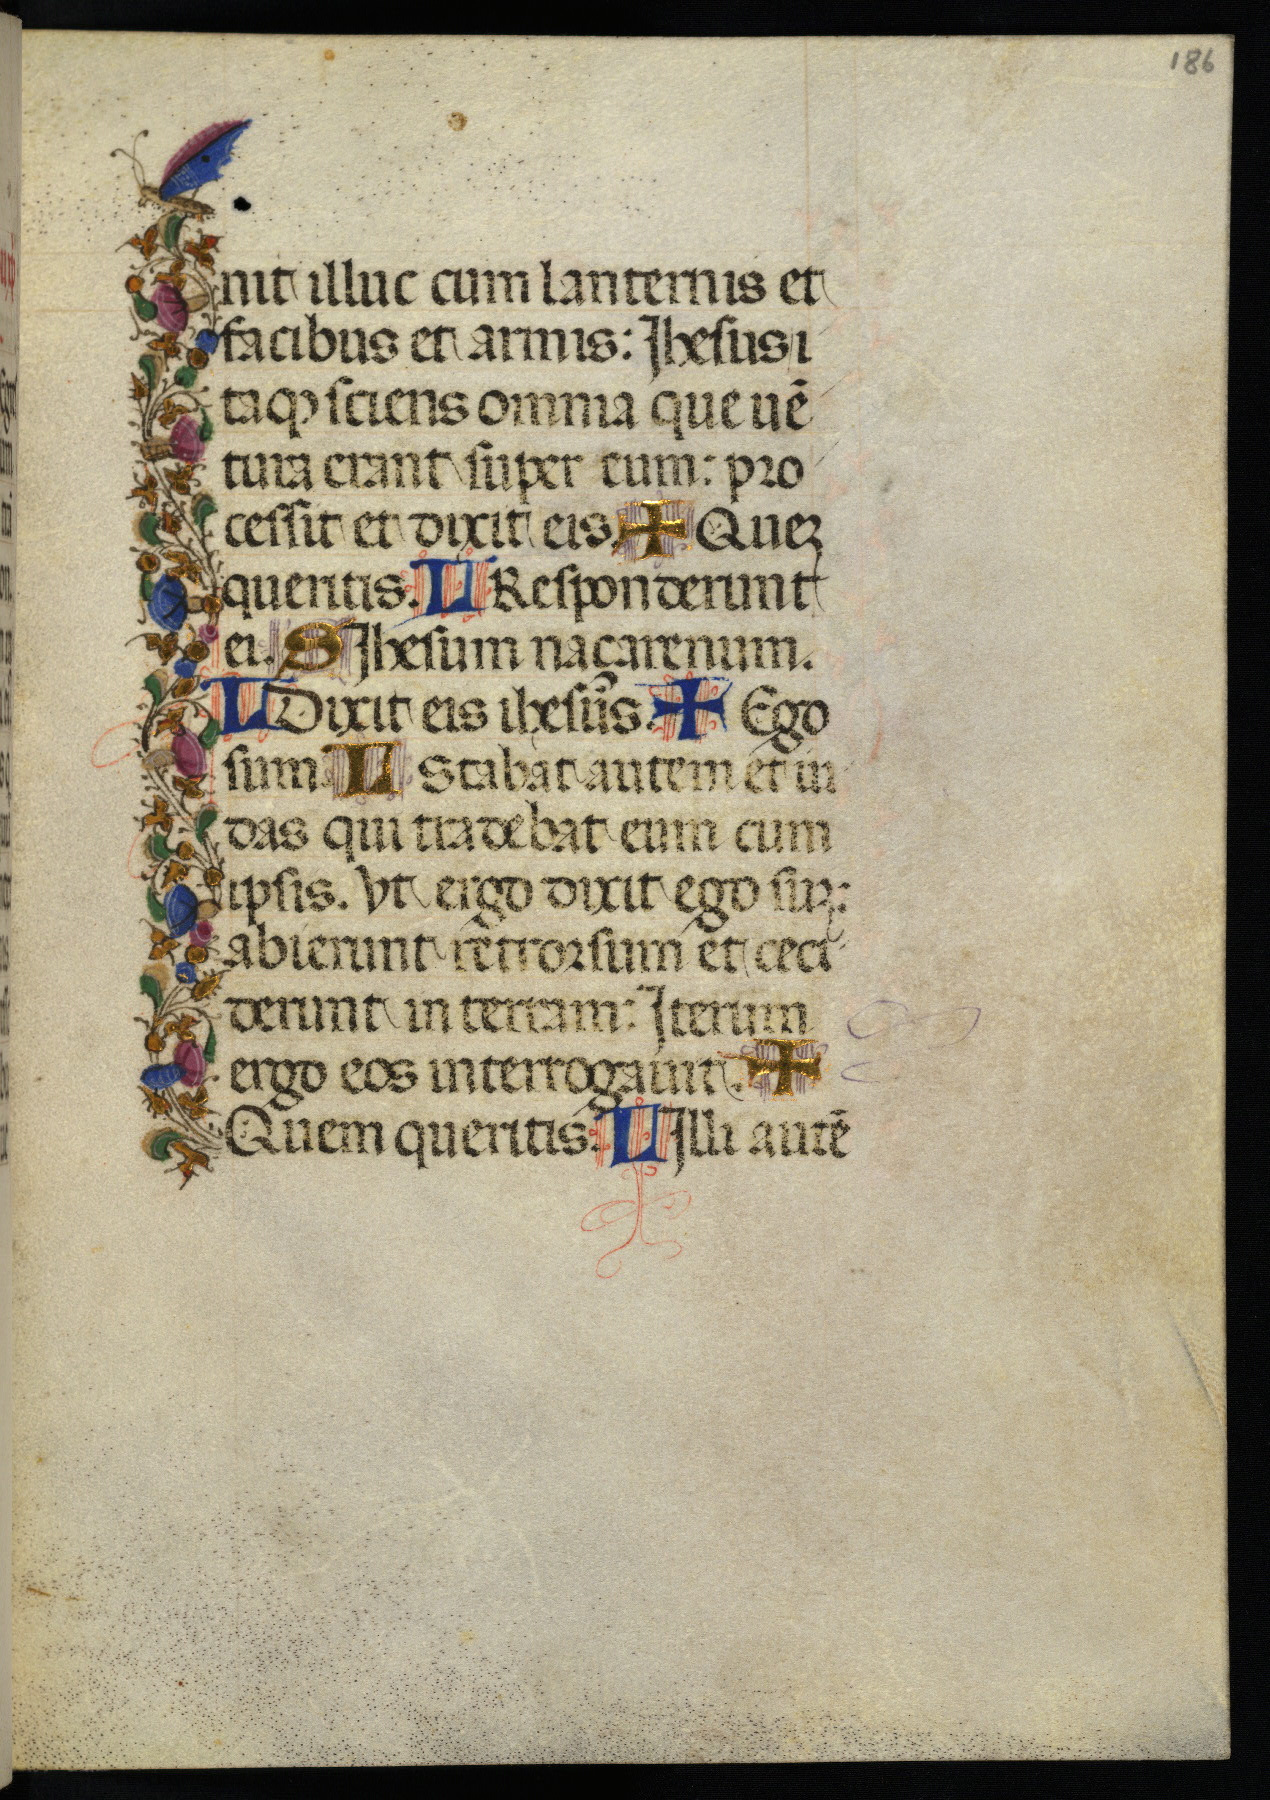 186
nit illuc cum lanternis et
facibus et armis: Jhesus i
taqꝫ sciens omnia que uē
tura erant super eum: pro
cessit et dixit eis. ✠ Queꝫ
queritis. L Responderunt
ei. S Jhesum naçarenum.
L Dixit eis ihesus. ✠ Ego
sum. L Stabat autem et iu
das qui tradebat eum cum
ipsis. Vt ergo dixit ego suꝫ:
abierunt retrorsum et ceci
derunt in terram: Jterum
ergo eos interrogauit. ✠
Quem queritis. L Jlli autē